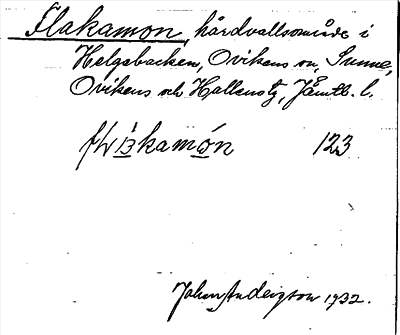 Flakamon, hårdvallsområde i
Helgebacken, Ovikens sn, Sunne,
Ovikens och Hallens tg, Jämtl. l.
kamón 123
Johan Anderzson 1932.